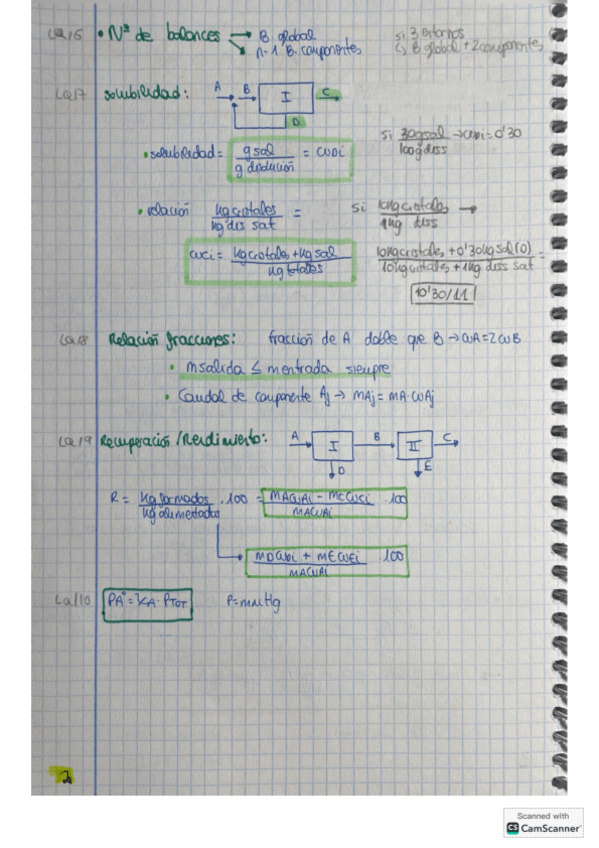 LQ/6 • Nº de balances → B. global si 3 entornos
→ n-1 B. componentes ↳ B global + 2 componentes
LQ/7 solubilidad: A B I C
D
• solubilidad = g sal / g disolución = ωDi si 30g sal / 100g diss → ωDi = 0'30
• relación kg cristales / kg dis sat = si 10kg cristales / 1kg diss →
ωCi = kg cristales + kg sal / kg totales 10kg cristales + 0'30kg sal (D) / 10kg cristales + 1kg diss sat =
10'30/11
LQ/8 Relación fracciones: fracción de A doble que B → ωA = 2ωB
• msalida ≤ mentrada siempre
• Caudal de componente Aj → mAj = mA·ωAj
LQ/9 Recuperación/Rendimiento: A I B II C
D E
R = kg formados / kg alimentados · 100 = mAωAi - mCωCi / mAωAi · 100
mDωDi + mEωEi / mAωAi · 100
LQ/10 PA° = KA · PTOT P = mmHg
2
Scanned with
CS CamScanner